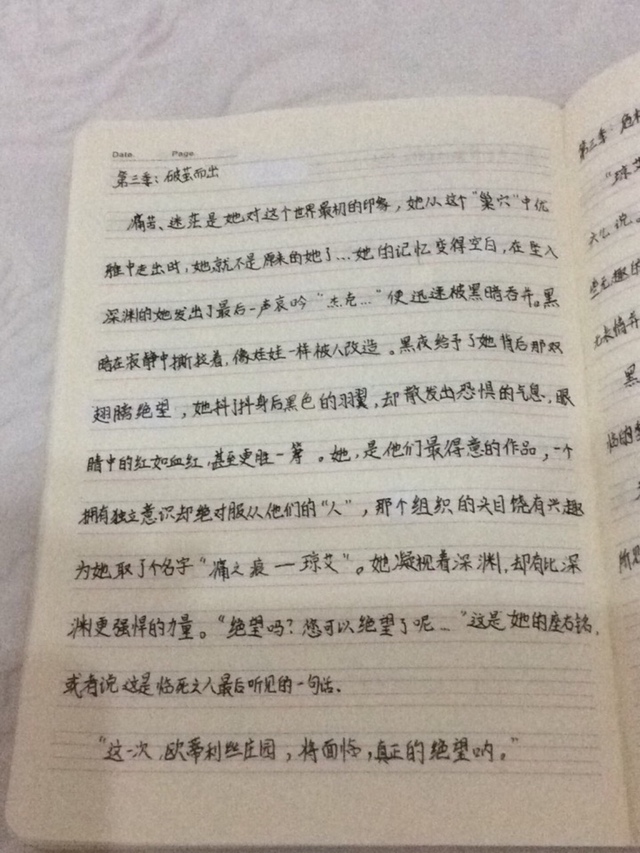 Date.   Page.
第三季：破茧而出
痛苦、迷茫是她对这个世界最初的印象，她从这个“巢穴”中优
胜中走出时，她就不是原来的她了…她的记忆变得空白，在坠入
深渊的她发出了最后一声哀吟“杰克…”便迅速被黑暗吞并。黑
暗在寂静中撕拉着，像娃娃一样被人改造。黑夜给予了她背后那双
翅膀绝望，她抖了抖身后黑色的羽翼，却散发出恐惧的气息，眼
睛中的红如血红，甚至更胜一筹。她，是他们最得意的作品，一个
拥有独立意识却绝对服从他们的“人”，那个组织的头目饶有兴趣
为她取了个名字“痛之裁一琼艾”。她凝视着深渊，却有比深
渊更强悍的力量。“绝望吗？您可以绝望了呢…”这是她的座右铭，
或者说这是临死之人最后听见的一句话.
“这一次，欧蒂利丝庄园，将面临，真正的绝望呐。”
第三季：
“琼艾
黑